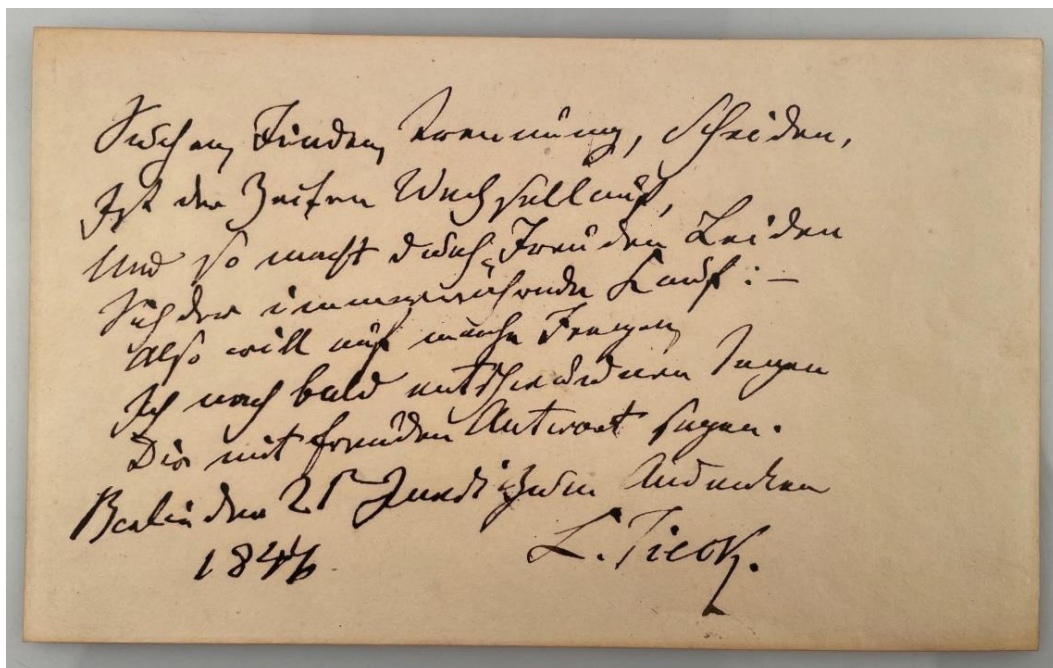 Suchen, Finden, Trennung, Scheiden,
Ist der Zeiten Wechsellauf,
Und so macht durch Freuden Leiden
Sich der immerwährende Kauf: –
Also will auf manche Fragen
Ich nach bald Tagen
Dir mit Freuden Antwort sagen.
Berlin den zum Andenken
1846 L. Tieck.